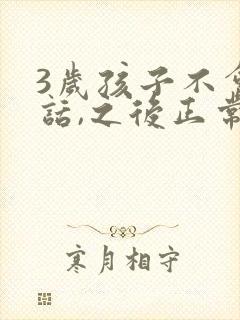 3歲孩子不會
話,之後正常
寒月相守